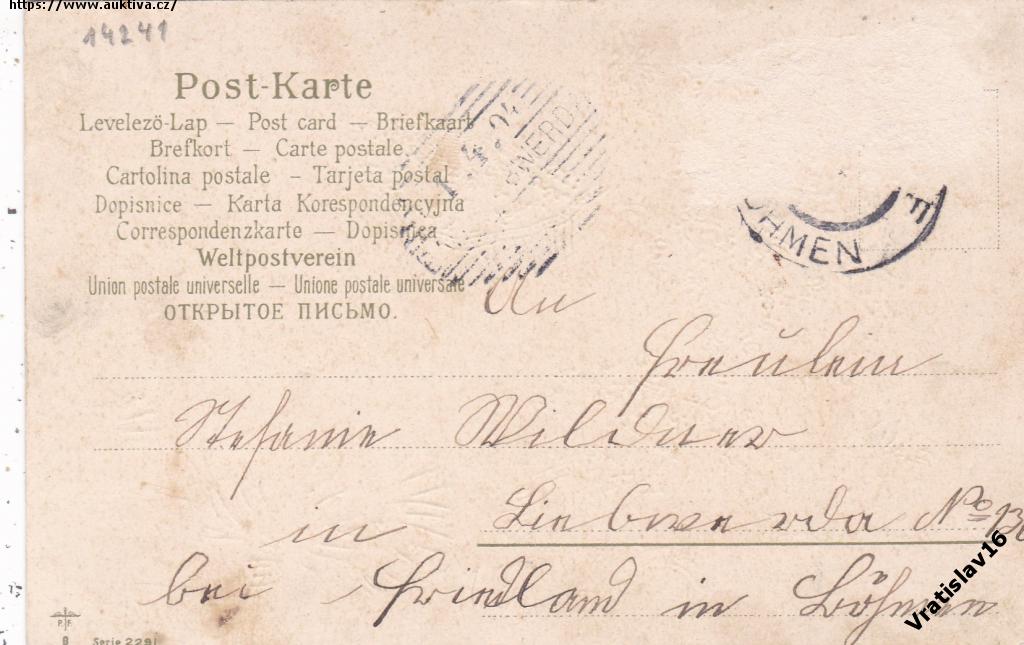 https://www.auktiva.cz/
14241
Post-Karte
Levelező-Lap — Post card — Briefkaart
Brefkort — Carte postale
Cartolina postale – Tarjeta postal
Dopisnice — Karta Korespondencyjna
Correspondenzkarte — Dopisnica
Weltpostverein
Union postale universelle — Unione postale universale
ОТКРЫТОЕ ПИСЬМО.
An
Freulein
Stefanie Wildner
in Liebwerda No
bei Friedland in Böhmen
HMEN
Vratislav16
P. F.
Serie 2291